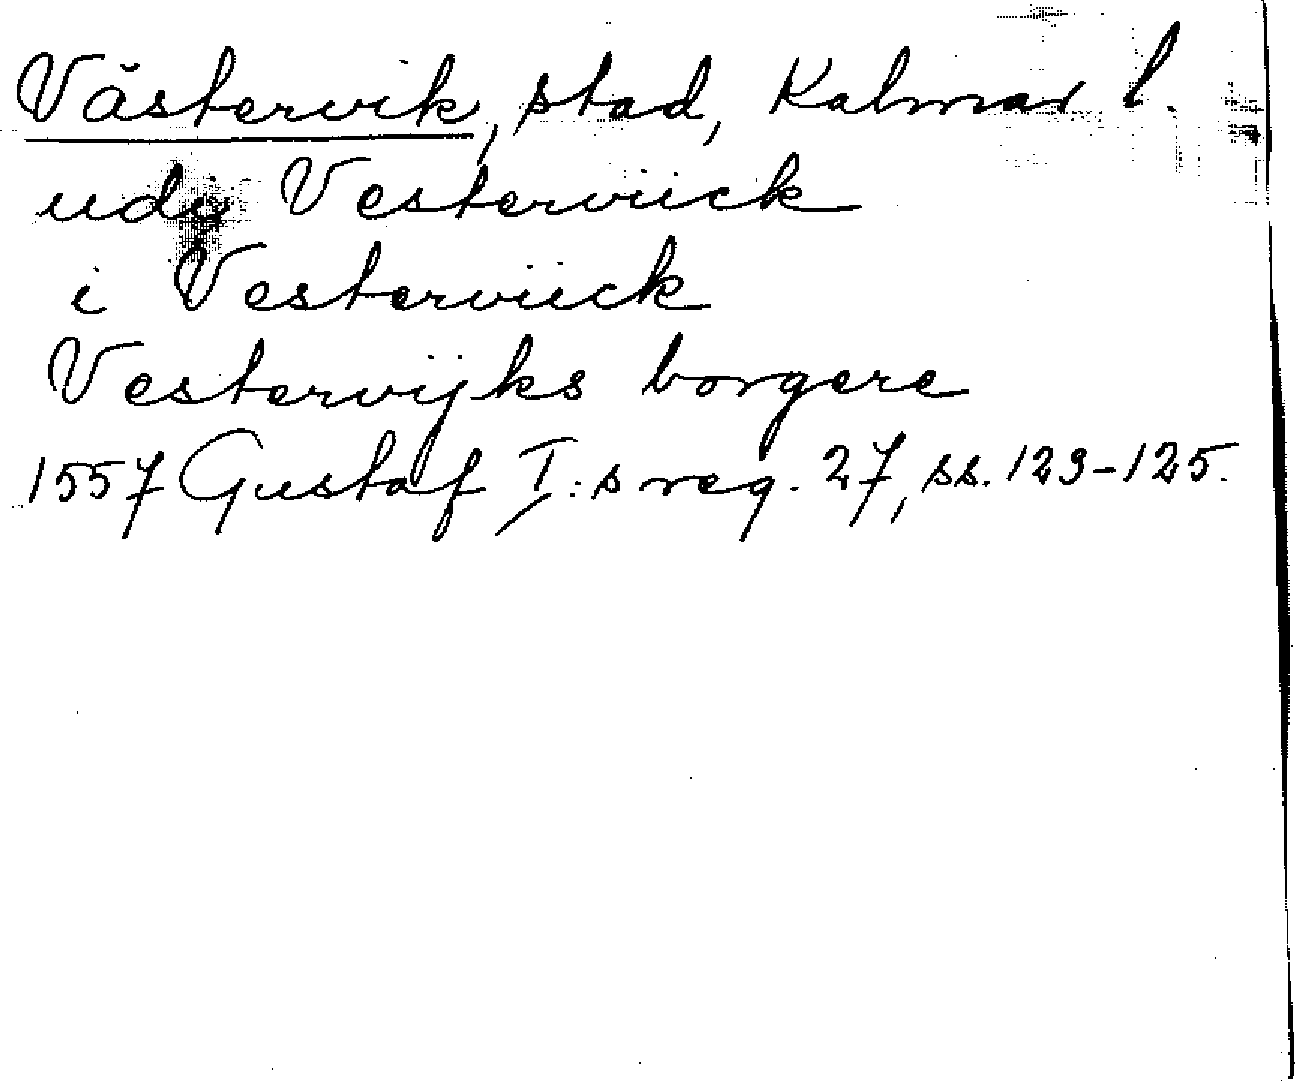 Västervik, stad, Kalmar l.
udg Vesterviick
i Vesterviick
Vestervijks borgere
1557 Gustaf I:s reg. 27, ss. 123-125.